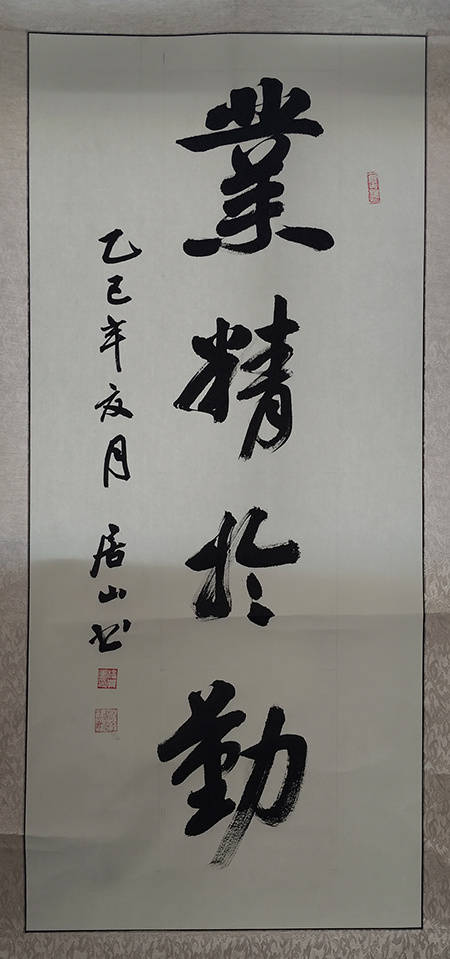 業精於勤
乙巳年夏月 居山书